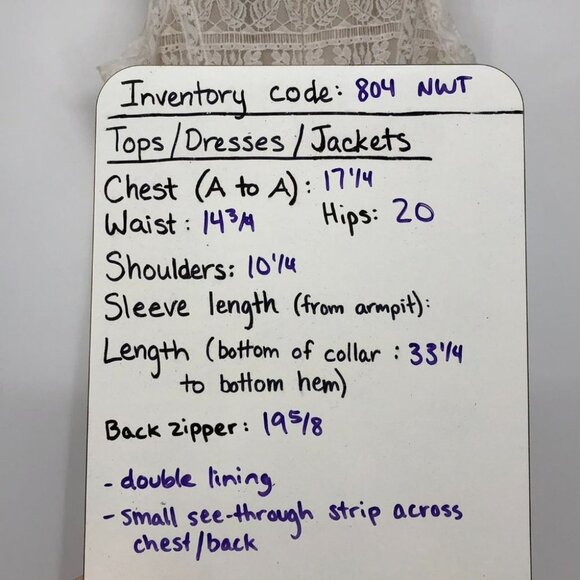 Inventory code: 804 NWT
Tops/Dresses/Jackets
Chest (A to A): 17 1/4
Waist: 14 3/4 Hips: 20
Shoulders: 10 1/4
Sleeve length (from armpit):
Length (bottom of collar : 33 1/4
to bottom hem)
Back zipper: 19 5/8
- double lining
- small see-through strip across
chest/back